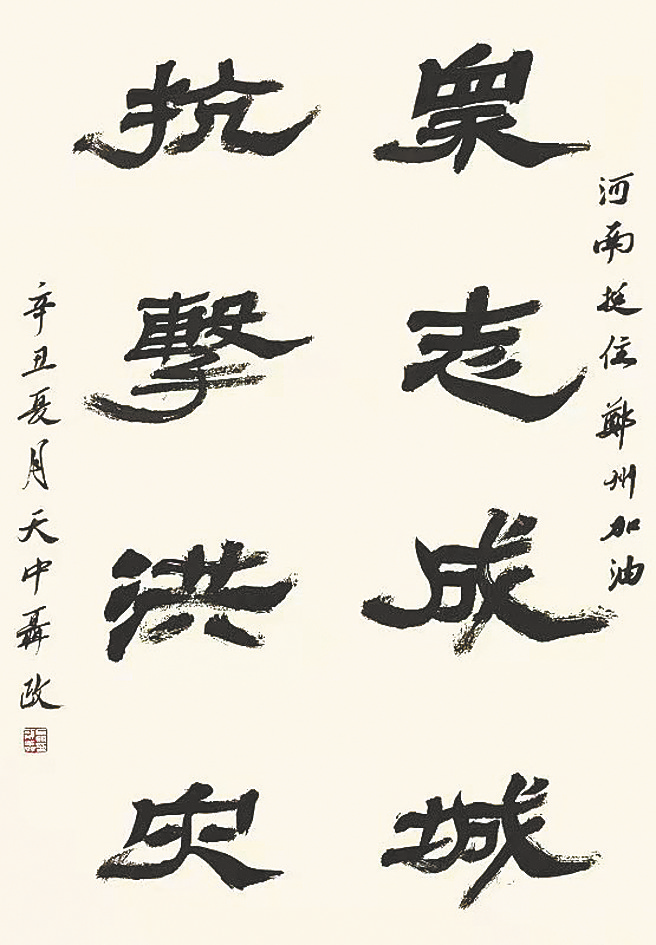 河南挺住鄭州加油
眾志成城
抗擊洪災
辛丑夏月天中聶政